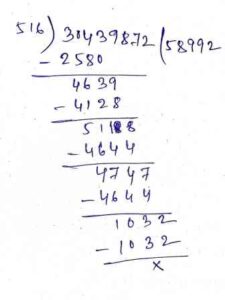 516 ) 30439872 ( 58992
- 2580
4639
- 4128
5118
- 4644
4747
- 4644
1032
- 1032
x